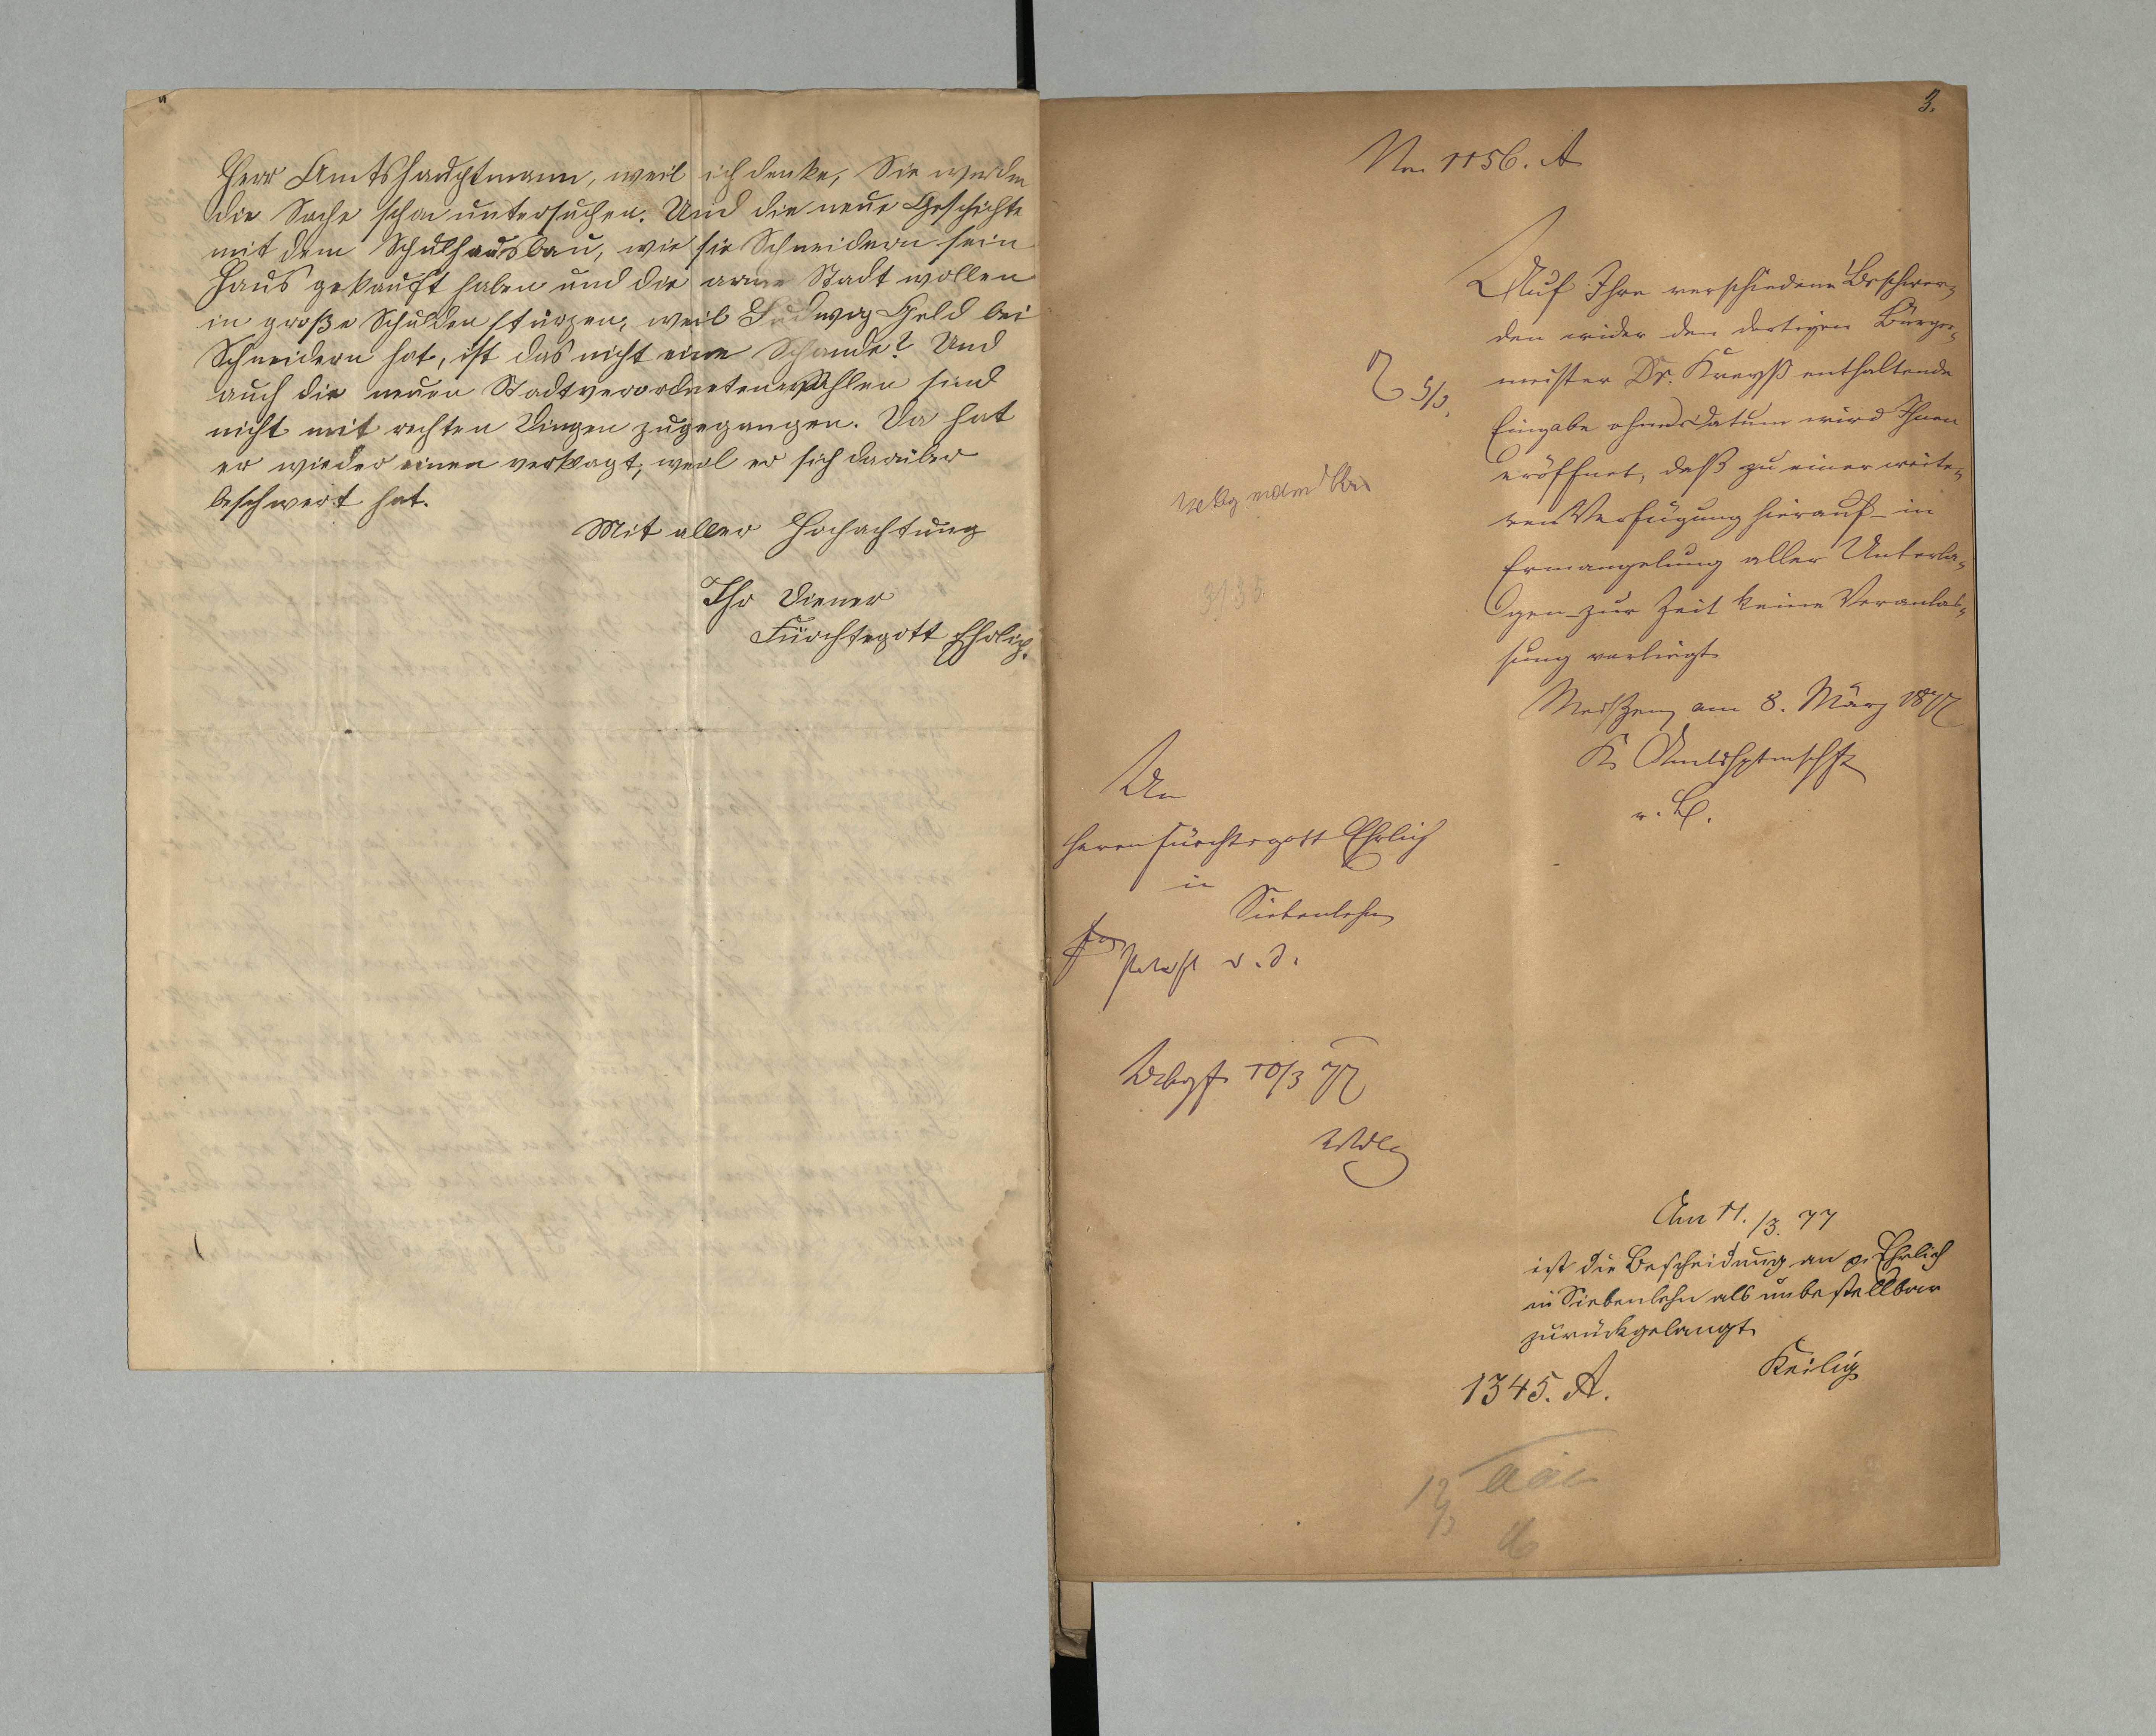 Herr Amtshauptmann, weil ich denke, Sie werden
die Sache schon untersuchen. Und die neue Geschichte
mit dem Schulhausbau, wie sie Schneidern sein
Haus gekauft haben und die arme Stadt wollen
in große Schulden stürzen, weil Ludwig Geld bei
Schneidern hat, ist das nicht eine Schande? Und
auch die neuen Stadtverordnetenwahlen sind
nicht mit rechten Dingen zugegangen. Da hat
er wieder einen verklagt, weil er sich darüber
beschwert hat.
Mit aller Hochachtung
Ihr Diener
Fürchtegott Ehrlich.
3.
No. 1156. A
Auf Ihre verschiedene Beschwer-
den wider den dortigen Bürger-
meister Dr. Kreyß enthaltende
Eingabe ohne Datum wird Ihnen
eröffnet, daß zu einer weite-
ren Verfügung hierauf - in
Ermangelung aller Unterla-
gen - zur Zeit keine Veranlas-
sung vorliegt.
Meißen, am 8. März 1877
K. Amtshptmschft
v. B.
5/3.
3135
An
Herrn Fürchtegott Ehrlich
in
Siebenlehn
10/3 77
Am 11./3. 77
ist die Bescheidung an p. Ehrlich
in Siebenlehn als unbestellbar
zurückgelangt.
Keilig
1345. A.
12/3